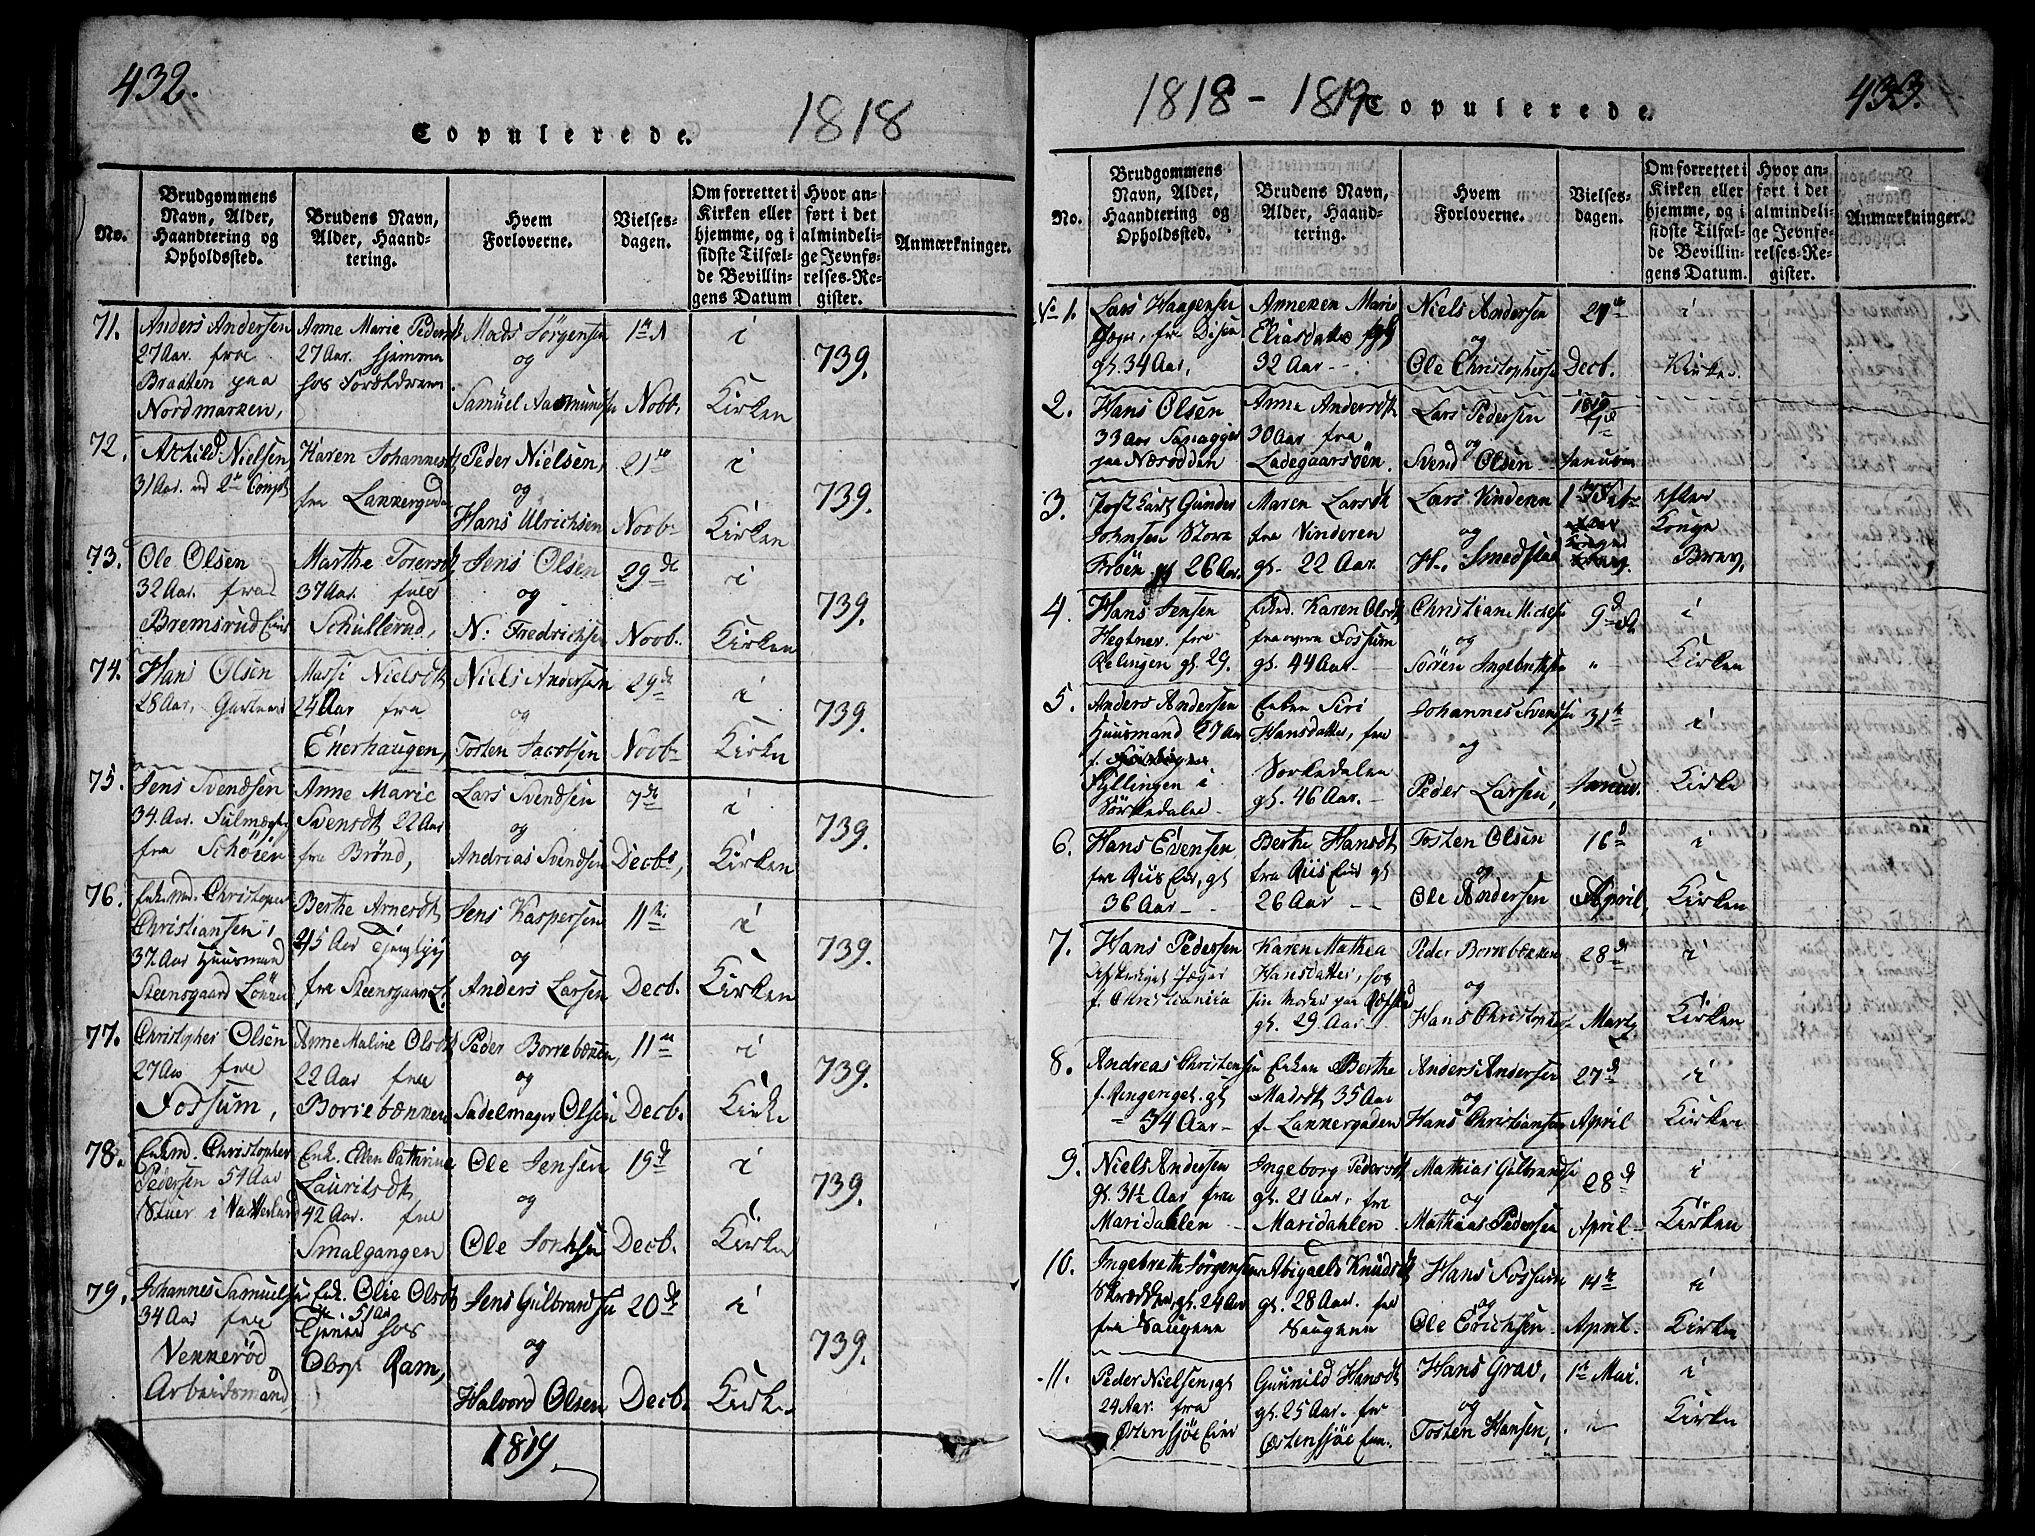 432.
Copulerede.
1818
No.
Brudgommens
Navn, Alder,
Haandtering og
Opholdssted.
Brudens Navn,
Alder, Haand-
tering.
Hvem
Forloverne.
Vielses-
dagen.
Om forrettet i
Kirken eller
hjemme, og i
sidste Tilfæl-
de Bevillin-
gens Datum
Hvor an-
ført i det
almindeli-
ge Jevnfø-
relses-Re-
gister.
Anmærkninger.
71.
Anders Andersen
27 Aar. fra
Braaten paa
Nordmarken,
Anne Marie Peders
27 Aar. hjemme
hos
Mads Jørgensen
og
Samuel Aasmundsen
1
Novb.
i
Kirken
739.
72.
Nielsen
31 Aar.
Karen Johannes
fra
Peder Nielsen,
og
Hans Ulrichsen
21
Novb.
i
Kirken
739.
73.
Ole Olsen
32 Aar. fra
Bremsrud Eie
Marthe
37 Aar.
Schullerud,
Jens Olsen
og
N. Fredrichsen
29 de
Novb.
i
Kirken
739.
74.
Hans Olsen
28 Aar.
Nielsdt
24 Aar fra
Enerhaugen,
Niels Andersen
og
Tosten Jacobsen
29 de
Novb.
i
Kirke
739.
75.
Jens Svendsen
34 Aar.
fra Schøien
Anne Marie
Svensdt 22 Aar
fra Brønd,
Lars Svendsen
og
Andreas Svendsen
7 de
Decbr,
i
Kirken
739.
76.
Enkemd. Christopher
Christiansen,
37 Aar Huusmand
Steensgaard
Berthe Arnesdt
45 Aar
fra
Jens Kaspersen
og
Anders Larsen
11 te
Decb.
i
Kirken
739.
77.
Christopher Olsen
27 Aar fra
Fossum,
Anne Maline Olsdt
22 Aar fra
Borrebækken
Peder Borrebækken,
og
Sadelmager Olsen
11
Decb.
i
Kirke
739.
78.
Enkmd. Christopher
Pedersen 54 Aar
Stuer i Vatterland
Enk. Ellen Cathrine
Lauritsdt
42 Aar. fra
Smalgangen
Ole Jensen
og
Ole
19 d
Decb.
i
Kirken
739.
79.
Johannes Samuelsen
34 Aar fra
Vekkerød
Arbeidsmand
Enk. Olie Olsdt
51 Aar
Tjener hos
Ram,
Jens Gulbrandsen
og
Halvord Olsen
20 de
Decb
i
Kirke
739.
1819
1818 - 1819
Copulerede.
433.
No.
Brudgommens
Navn, Alder,
Haandtering og
Opholdssted.
Brudens Navn,
Alder, Haand-
tering.
Hvem
Forloverne.
Vielses-
dagen.
Om forrettet i
Kirken eller
hjemme, og i
sidste Tilfæl-
de Bevillin-
gens Datum.
Hvor an-
ført i det
almindeli-
ge Jevnfø-
relses-Re-
gister.
Anmærkninger.
No 1.
Lars Haagensen
gl. 34 Aar,
Anneken Marie
Eliasdatter
32 Aar
Niels Andersen
og
Ole Christophersen
Decb.
i
Kirken.
2.
Hans Olsen
33 Aar
paa Næsodden
Anne Andersdt
30 Aar fra
Ladegaarsøen.
Lars Pedersen
og
Svend Olsen
1819
Januar
3.
Gunder
Johnsen Store
Frøen gl 26 Aar.
Maren Larsdt
fra Vinderen
gl. 22 Aar.
Lars Vinderen
og
H. Smedstad
1 Feb
efter
Konge
Brev,
4.
Hans Jensen
Hegtner fra
gl. 29.
Enkd. Karen Olsdt
Fossum
gl. 44 Aar
Christian
og
Søren Ingebrethsen
9
i
Kirken
5.
Anders Andersen
Huusmand 27 Aar
Fyllingen i
Sørkedalen
Enken Siri
Hansdatter, fra
Sorkedalen
gl. 46 Aar.
Johannes Svendsen
og
Peder Larsen,
31
Januar.
i
Kirke
6.
Hans Evensen
fra Riis Eie, gl
36 Aar
Berthe Hansdt
fra Riis Eie gl
26 Aar
Tosten Olsen
og
Ole Andersen
16 d
April,
i
Kirken
7.
Hans Pedersen
Jæger
f. Christiania
Karen Mathea
Hansdatter, hos
sin Moder paa
gl. 29 Aar
Peder Borrebækken
og
Hans Christophersen
28 d
Marty
i
Kirken
8.
Andreas Christensen
f. Ringeriget. gl
34 Aar
Enken Berthe
Madsdt 35 Aar
Anders Andersen
og
Hans Christiansen
27 d
April
i
Kirken
9.
Niels Andersen
gl. 31½ Aar fra
Maridahlen
Ingeborg Pedersdt
gl. 21 Aar, fra
Maridahlen
Mathias Gulbrandsen
og
Mathias Pedersen
28 d
April
i
Kirken
10.
Ingebreth Jørgensen
Skrædder, gl. 24 Aar
fra Saugene
Abigaels Knudsdt
gl. 28 Aar. fra
Saugene
Hans Fossum
og
Ole Erichsen
14
April.
i
Kirke
11.
Peder Nielsen, gl
24 Aar. fra
Østensjøe Eie
Gunnild Hansdt
gl. 25 Aar. fra
Østensjøe
Hans Grav,
og
Tosten Hansen,
1 Mai.
i
Kirke